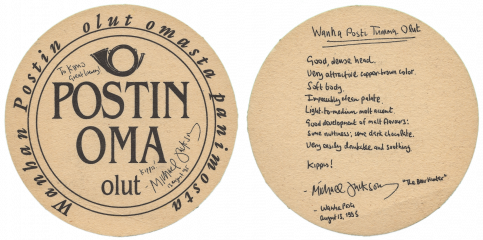 Wanhan Postin olut omasta panimosta
To Kimmo
Great beer
POSTIN
OMA
olut
Kippis
Michael Jackson
August 95
Wanha Posti Tumma Olut
Good, dense head.
Very attractive copper-brown color.
Soft body.
Impeccably clean palate
Light-to-medium malt accent.
Good development of malt flavours:
some nuttiness, some dark chocolate.
Very easily drinkable and soothing
Kippis!
- Michael Jackson "The Beer Hunter"
- Wanha Posti
August 15, 1995